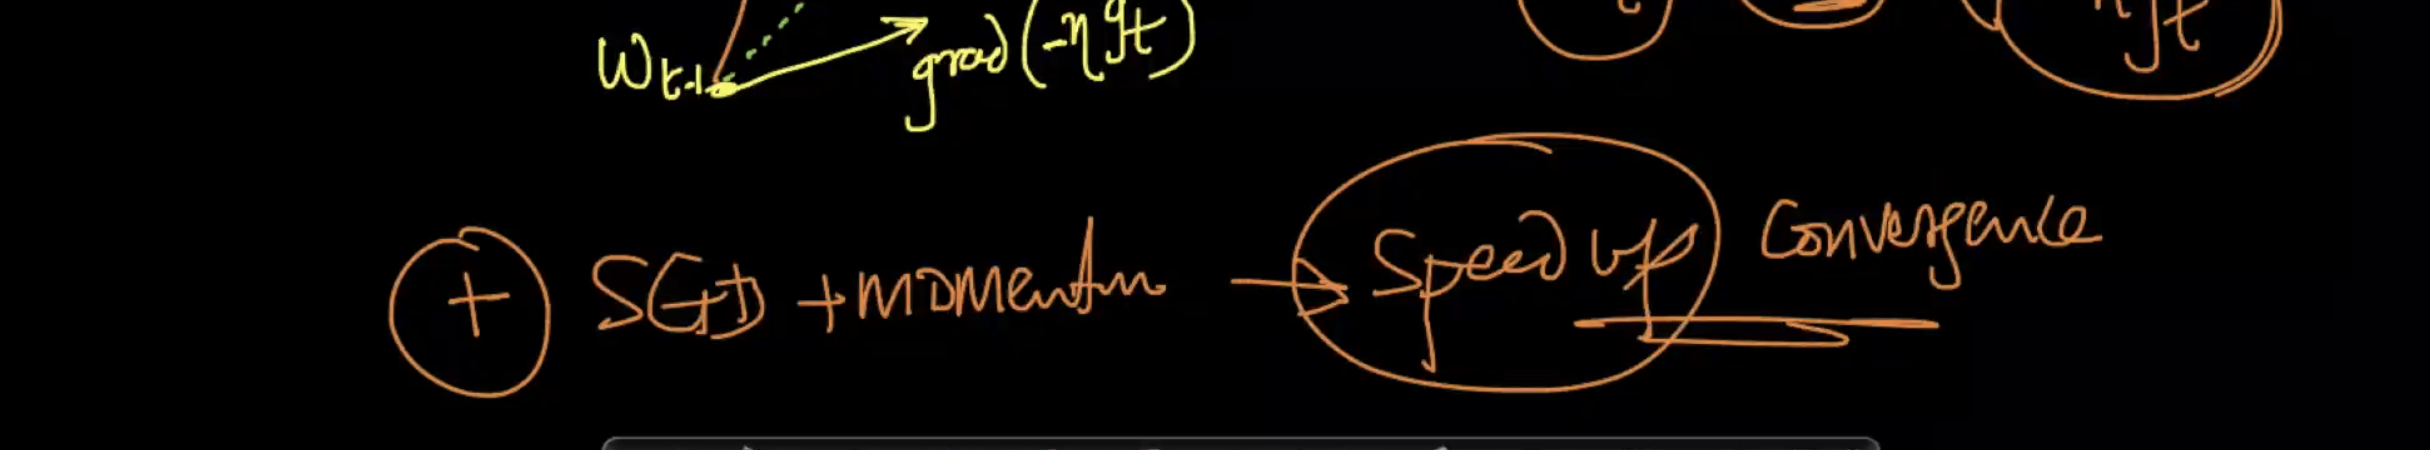 grad (-ηgt)
Wt-1
ηgt
+ SGD + momentum → Speed up Convergence